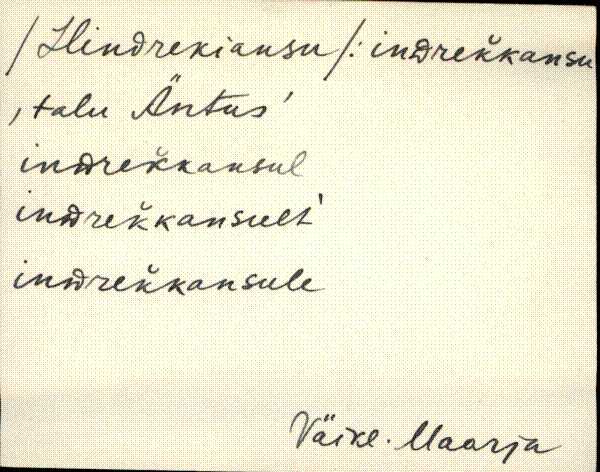 /Hindrekiansu/: inᴅrek̆kansu
‚talu Äntus’
inᴅrek̆kansul
inᴅrek̆kansult‵
inᴅrek̆kansule
Väike-Maarja